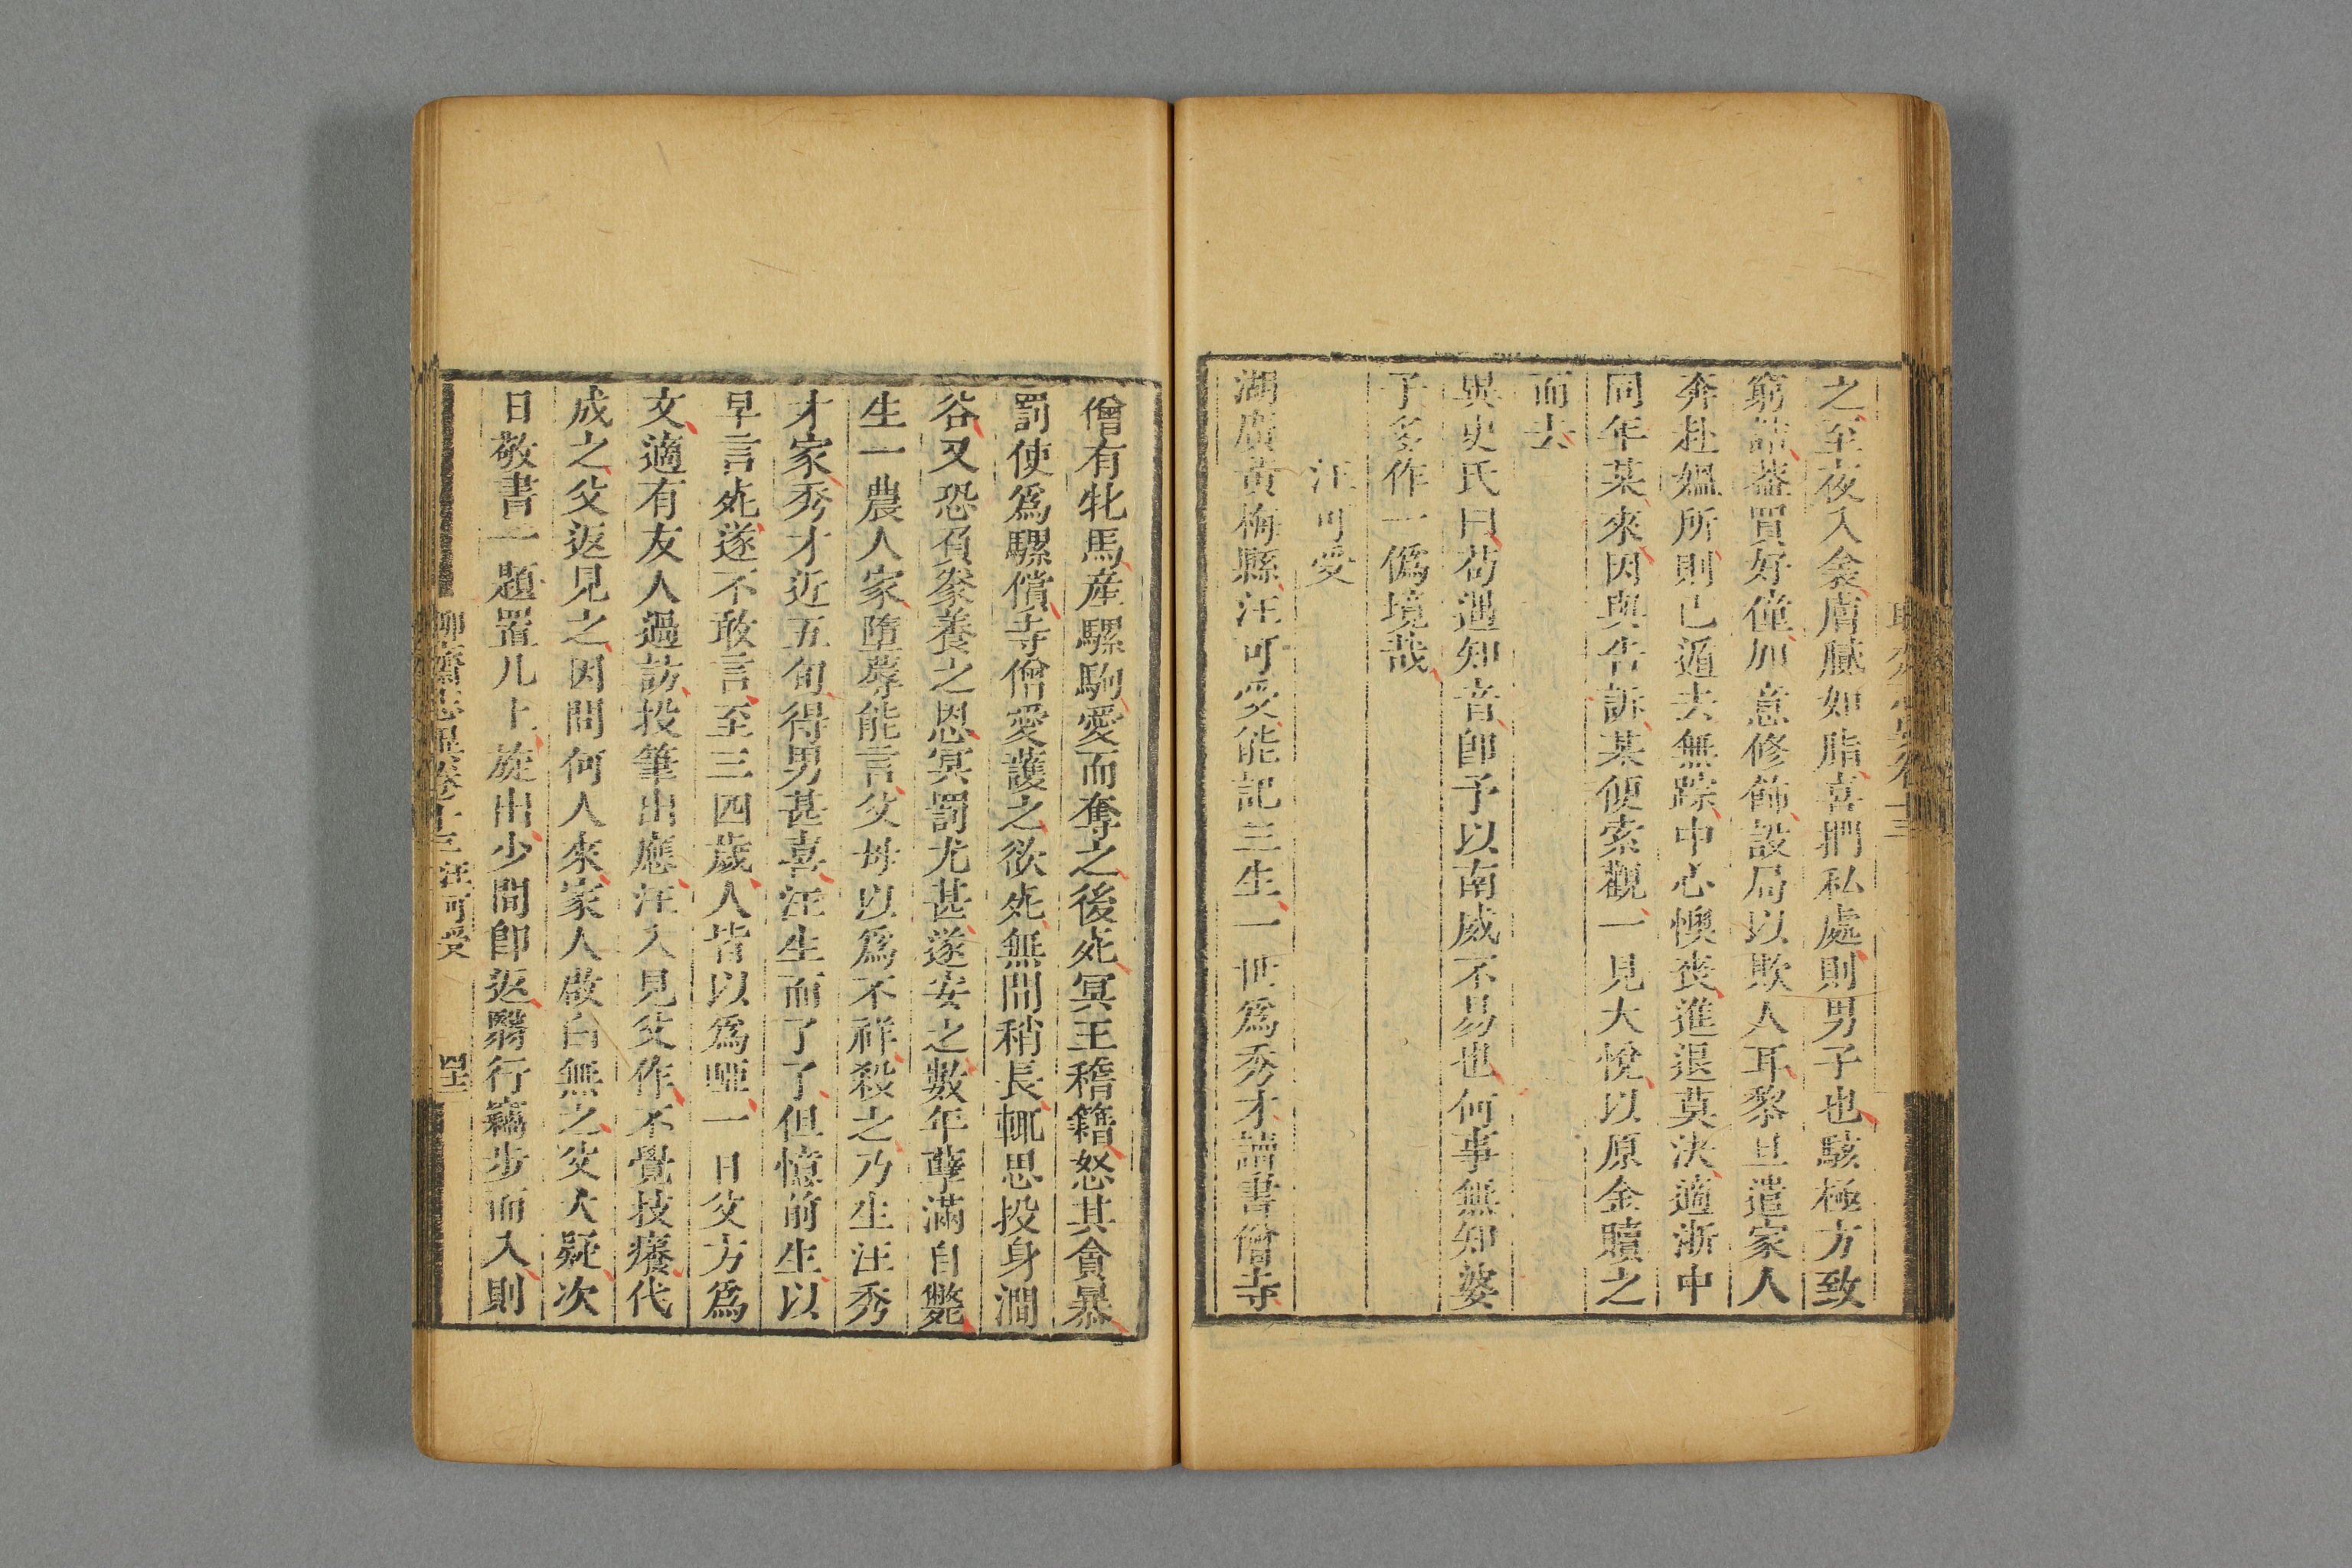 之至夜入衾膚膩如脂喜捫私處則男子也駭極方致
窮詰葢買好僮加意修飾設局以欺人耳黎旦遣家人
奔赴媼所則已遁去無踪中心懊喪進退莫決適浙中
同年某來因與告訴某便索觀一見大悅以原金贖之
而去
異史氏曰苟遇知音卽予以南威不易也何事無知婆
子多作一僞境哉
汪可受
湖廣黃梅縣汪可受能記三生一世爲秀才讀書僧寺
僧有牝馬産騾駒愛而奪之後死冥王稽籍怒其貪暴
罰使爲騾償寺僧愛護之欲死無間稍長輒思投身澗
谷又恐負豢養之恩冥罰尤甚遂安之數年孽滿自斃
生一農人家墮蓐能言父母以爲不祥殺之乃生汪秀
才家秀才近五旬得男甚喜汪生而了了但憶前生以
早言死遂不敢言至三四歲人皆以爲啞一日父方爲
文適有友人過訪投筆出應汪入見父作不覺技癢代
成之父返見之因問何人來家人啟白無之父大疑次
日敬書一題置几上旋出少間卽返翳行竊步而入則
聊齋志異卷十三 汪可受